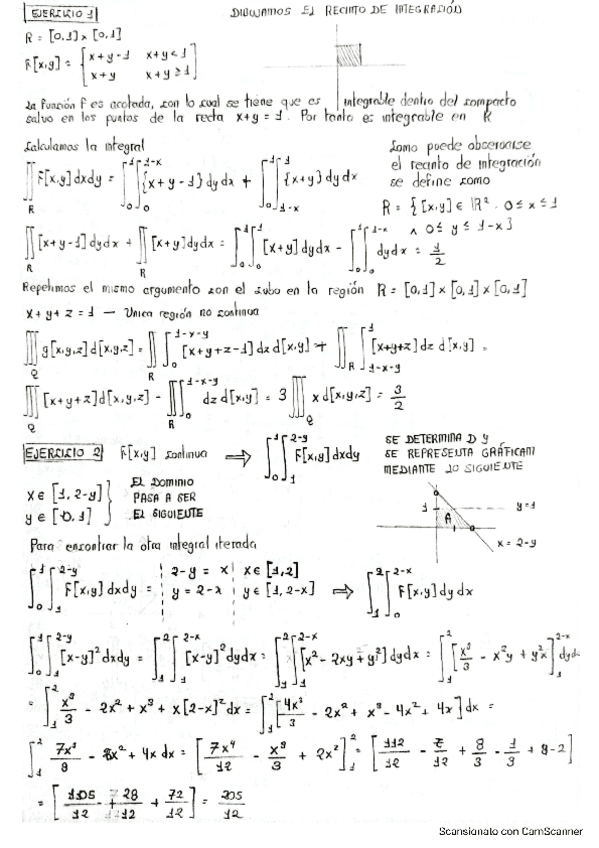 EJERCICIO 1
DIBUJAMOS EL RECINTO DE INTEGRACIÓN
R = [0,1] x [0,1]
F[x,y] = { x+y-1 x+y<1
x+y x+y≥1 }
La función F es acotada, con lo cual se tiene que es integrable dentro del compacto
salvo en los puntos de la recta x+y = 1. Por tanto es integrable en R
Calculamos la integral
Como puede observarse
el recinto de integración
se define como
∬_R F[x,y]dxdy = ∫_0^1∫_0^{1-x} {x+y-1}dydx + ∫_0^1∫_{1-x}^1 {x+y}dydx
R = {[x,y] ∈ ℝ². 0≤x≤1
∧ 0≤y≤1-x}
∬_R [x+y-1]dydx + ∬_R [x+y]dydx = ∫_0^1∫_0^1 [x+y]dydx - ∫_0^1∫_0^{1-x} dydx = 1/2
Repetimos el mismo argumento con el cubo en la región R = [0,1] x [0,1] x [0,1]
x+y+z = 1 — Unica región no continua
∭_Q g[x,y,z]d[x,y,z] = ∬_R ∫_0^{1-x-y} [x+y+z-1]dz d[x,y] + ∬_R ∫_{1-x-y}^1 [x+y+z]dz d[x,y] =
∭_Q [x+y+z]d[x,y,z] - ∬_R ∫_0^{1-x-y} dz d[x,y] = 3∭_Q x d[x,y,z] = 3/2
EJERCICIO 2 F[x,y] continua ⟹ ∫_0^1∫_1^{2-y} F[x,y]dxdy
SE DETERMINA D Y
SE REPRESENTA GRÁFICAM
MEDIANTE LO SIGUIENTE
x ∈ [1, 2-y]
y ∈ [0,1]
EL DOMINIO
PASA A SER
EL SIGUIENTE
1 A y=1
x = 2-y
Para encontrar la otra integral iterada
∫_0^1∫_1^{2-y} F[x,y]dxdy = 2-y = x x ∈ [1,2]
y = 2-x y ∈ [1, 2-x] ⟹ ∫_1^2∫_0^{2-x} F[x,y]dydx
∫_0^1∫_1^{2-y} [x-y]²dxdy = ∫_1^2∫_1^{2-x} [x-y]²dydx = ∫_1^2∫_1^{2-x} [x²-2xy+y²]dydx = ∫_1^2 [x³/3 - x²y + y²x]_1^{2-x} dydx
= ∫_1^2 x³/3 - 2x² + x³ + x[2-x]²dx = ∫_1^2 [4x³/3 - 2x² + x³ - 4x² + 4x]dx =
∫_1^2 7x³/3 - 6x² + 4x dx = [7x⁴/12 - x³/3 + 2x²]_1^2 = [112/12 - 7/12 + 8/3 - 1/3 + 8-2]
= [105/12 + 28/12 + 72/12] = 205/12
Scansionato con CamScanner